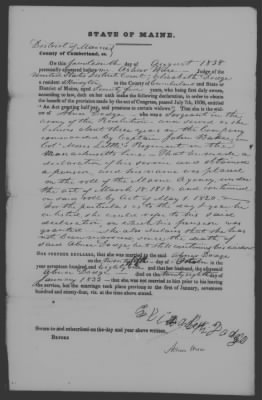 STATE OF MAINE.
District of Maine
County of Cumberland, ss.
On this fourteenth day of August 1838
personally appeared before me Ashur Ware Judge of the
United States District Court Elizabeth Dodge
a resident of in the County of Cumberland and State or
District of Maine, aged Seventy five years, who being first duly sworn,
according to law, doth on her oath make the following declaration, in order to obtain
the benefit of the provision made by the act of Congress, passed July 7th, 1838, entitled
"An Act granting half pay, and pensions to certain widows." That she is the wid-
ow of Abner Dodge, who was a sergeant in the
Army of the Revolution and served in the
about three years in the Company
commanded by Captain John Baker,
Col. Moses Little's Regiment in the
Massachusetts line. That he made a
declaration of his service and obtained
a pension, and his name was placed
on the roll of the Maine Agency, under
the act of March 18. 1818. and continued
on said roll by act of May 1 1820.
For the particulars of the service
she refers to his said
declaration on which his pension was
granted. She also declares that she has
not since the death of
said Abner Dodge but still continues his widow
She further declares, that she was married to the said Abner Dodge
on the day of October in the
year seventeen hundred and eighty and that her husband, the aforesaid
Abner Dodge died on the day of
January 1833 that she was not married to him prior to his leaving
the service, but the marriage took place previous to the first of January, seventeen
hundred and ninety-four, viz. at the time above stated.
Elizabeth Dodge
Sworn to and subscribed on the day and year above written,
Before
Ashur Ware